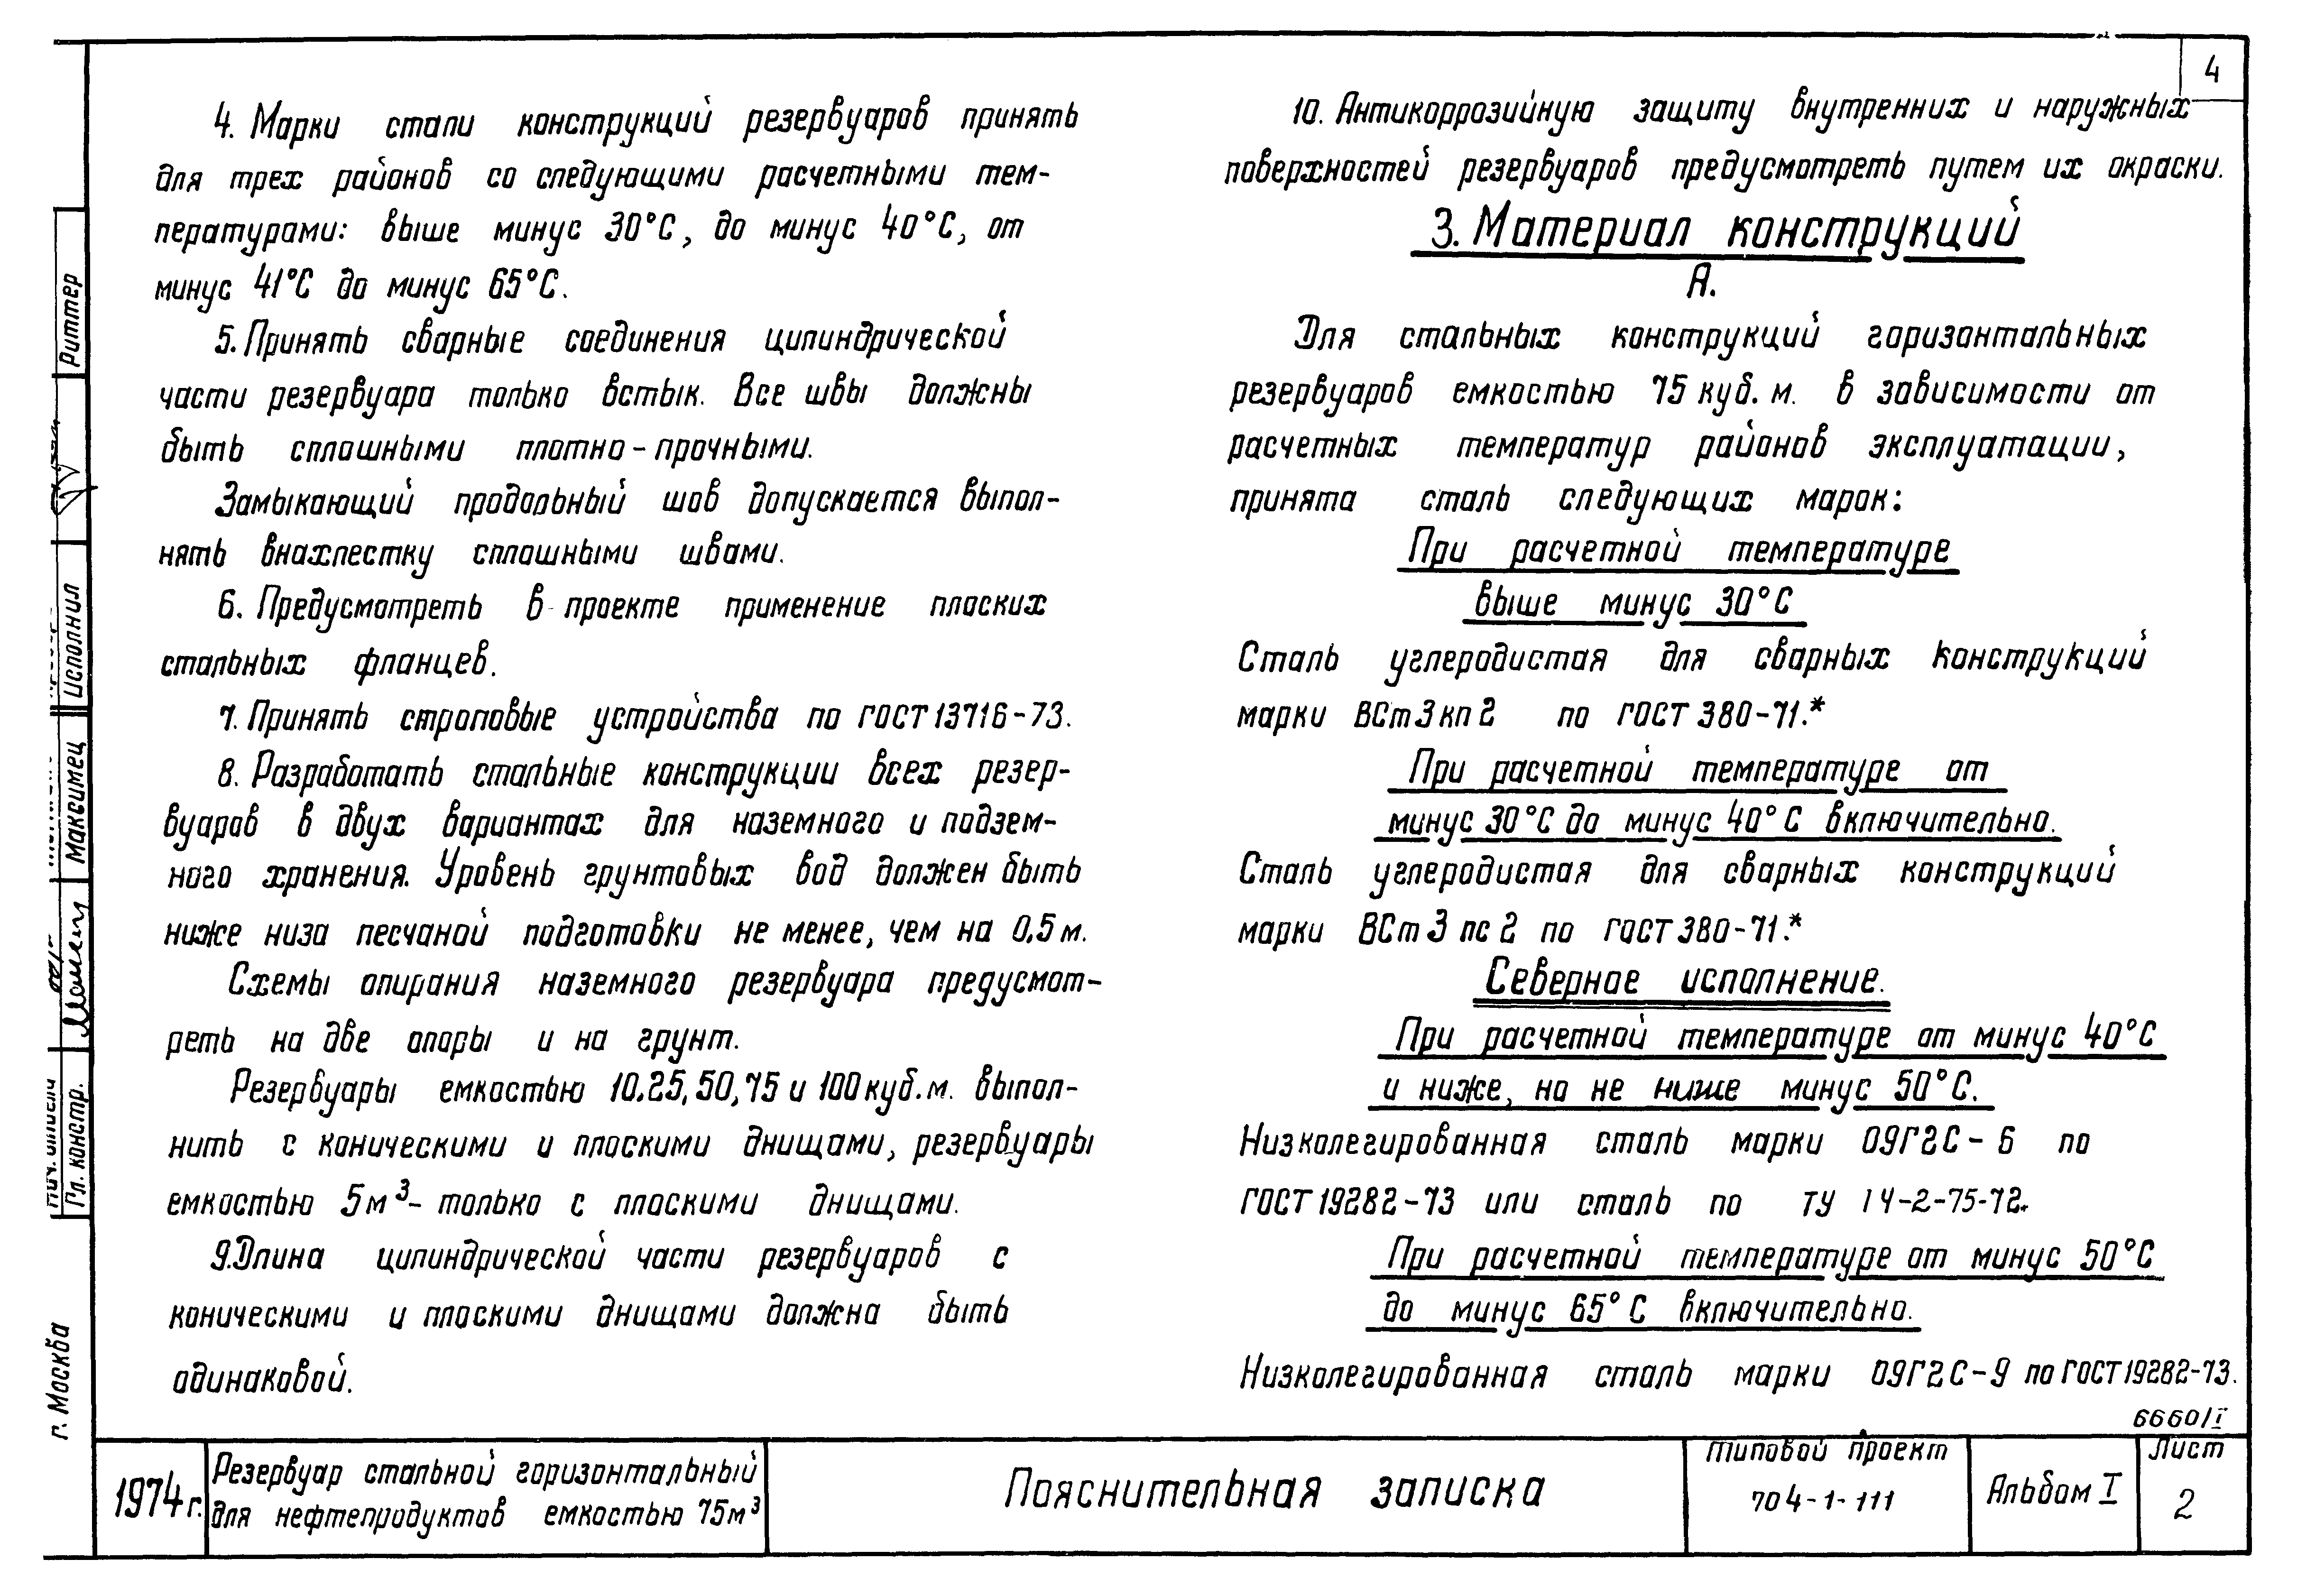 4
4. Марки стали конструкций резервуаров принять
для трех районов со следующими расчетными тем-
пературами: выше минус 30°С, до минус 40°С, от
минус 41°С до минус 65°С.
5. Принять сварные соединения цилиндрической
части резервуара только встык. Все швы должны
быть сплошными плотно-прочными.
Замыкающий продольный шов допускается выпол-
нять внахлестку сплошными швами.
6. Предусмотреть в проекте применение плоских
стальных фланцев.
7. Принять строповые устройства по ГОСТ 13716-73.
8. Разработать стальные конструкции всех резер-
вуаров в двух вариантах для наземного и подзем-
ного хранения. Уровень грунтовых вод должен быть
ниже низа песчаной подготовки не менее, чем на 0,5 м.
Схемы опирания наземного резервуара предусмот-
реть на две опоры и на грунт.
Резервуары емкостью 10.25, 50, 75 и 100 куб.м. выпол-
нить с коническими и плоскими днищами, резервуары
емкостью 5м³- только с плоскими днищами.
9. Длина цилиндрической части резервуаров с
коническими и плоскими днищами должна быть
одинаковой.
10. Антикоррозийную защиту внутренних и наружных
поверхностей резервуаров предусмотреть путем их окраски.
3. Материал конструкций
А.
Для стальных конструкций горизонтальных
резервуаров емкостью 75 куб. м. в зависимости от
расчетных температур районов эксплуатации,
принята сталь следующих марок:
При расчетной температуре
выше минус 30°С
Сталь углеродистая для сварных конструкций
марки ВСт 3 кп 2 по ГОСТ 380-71.*
При расчетной температуре от
минус 30°С до минус 40°С включительно.
Сталь углеродистая для сварных конструкций
марки ВСт 3 пс 2 по ГОСТ 380-71.*
Северное исполнение.
При расчетной температуре от минус 40°С
и ниже, но не ниже минус 50°С.
Низколегированная сталь марки 09Г2С-6 по
ГОСТ 19282-73 или сталь по ТУ 14-2-75-72.
При расчетной температуре от минус 50°С
до минус 65°С включительно.
Низколегированная сталь марки 09Г2С-9 по ГОСТ 19282-73.
6660/I
Риттер
Исполнил
Максимец
Гл. констр.
г. Москва
1974 г.
Резервуар стальной горизонтальный
для нефтепродуктов емкостью 75м³
Пояснительная записка
Типовой проект
704-1-111
Альбом I
Лист
2